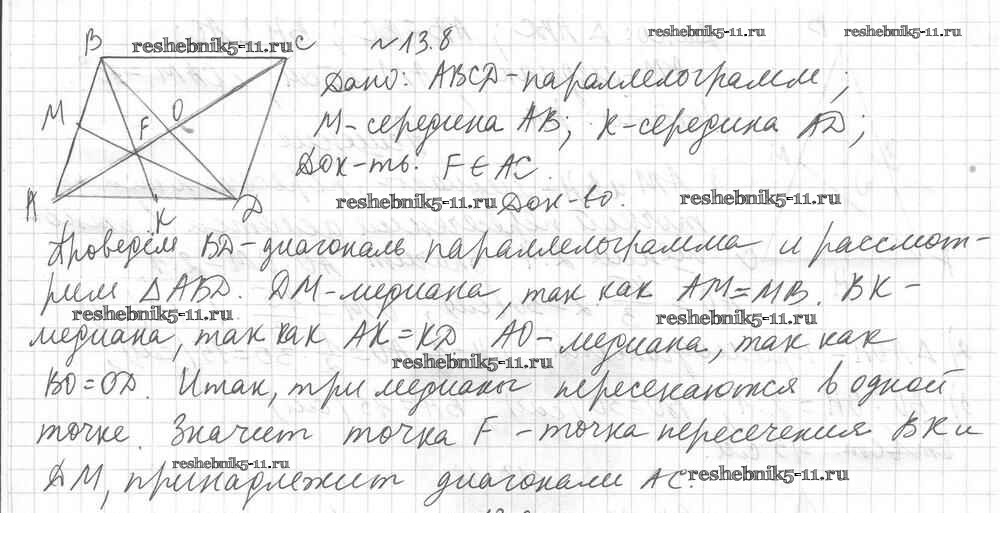 reshebnik5-11.ru reshebnik5-11.ru
B reshebnik5-11.ru C №13.8
Дано: ABCD-параллелограмм;
M
O
F
M-середина AB; K-середина AD;
Док-ть: F∈AC.
A
K
D
reshebnik5-11.ru Док-во. reshebnik5-11.ru
Проведём BD-диагональ параллелограмма и рассмот-
рим △ABD. DM-медиана, так как AM=MB. BK-
reshebnik5-11.ru reshebnik5-11.ru
медиана, так как AK=KD AO-медиана, так как
reshebnik5-11.ru
BO=OD. Итак, три медианы пересекаются в одной
точке. Значит точка F-точка пересечения BK и
reshebnik5-11.ru
DM, принадлежит диагонали AC.
reshebnik5-11.ru